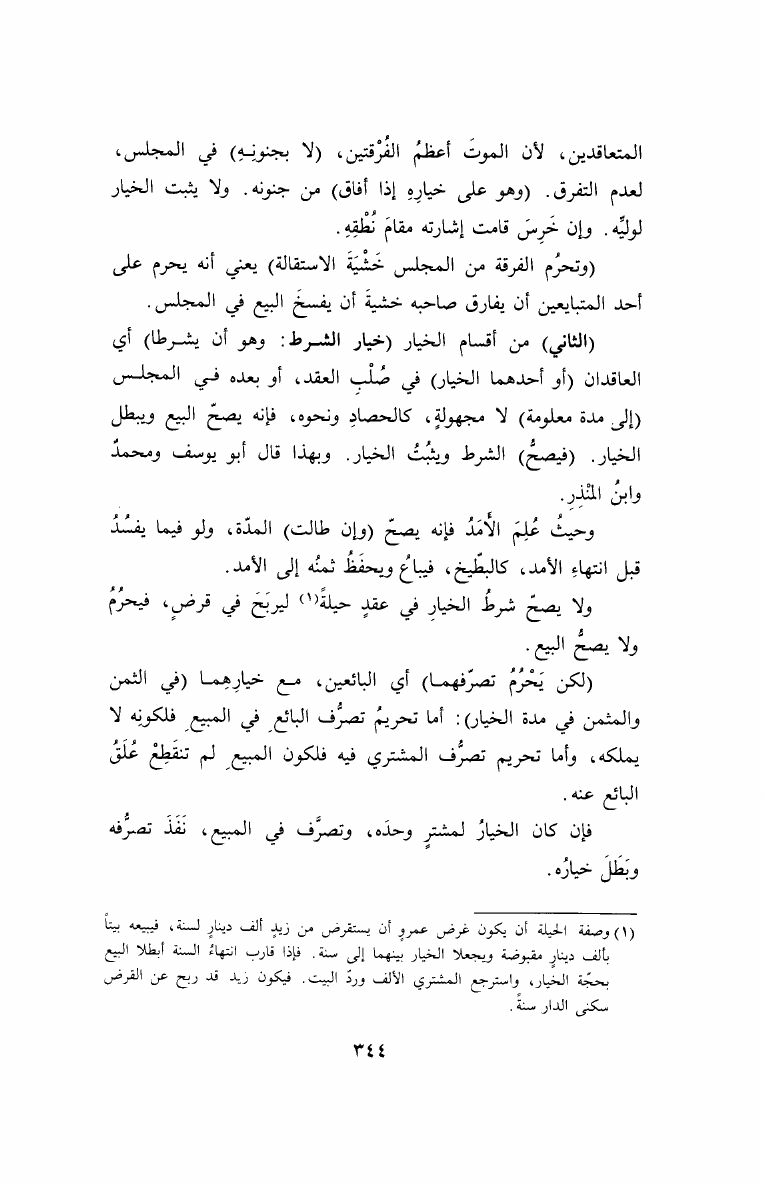 المتعاقدين، لأن الموتَ أعظمُ الفُرْقتين، (لا بجنونِـهِ) في المجلس،
لعدم التفرق. (وهو على خيارِهِ إذا أفاق) من جنونه. ولا يثبت الخيار
لوليِّه. وإن خَرِسَ قامت إشارته مقامَ نُطْقِهِ.
(وتحرُم الفرقة من المجلس خَشْيَةَ الاستقالة) يعني أنه يحرم على
أحد المتبايعين أن يفارق صاحبه خشيةَ أن يفسخَ البيع في المجلس.
(الثاني) من أقسام الخيار (خيار الشـرط: وهو أن يشـرطا) أي
العاقدان (أو أحدهما الخيار) في صُلْبِ العقد، أو بعده فـي المجلـس
(إلى مدة معلومة) لا مجهولةٍ، كالحصادِ ونحوه، فإنه يصحّ البيع ويبطل
الخيار. (فيصحُّ) الشرط ويثبُتُ الخيار. وبهذا قال أبو يوسف ومحمدٌ
وابنُ المُنْذِرِ.
وحيثُ عُلِمَ الأَمَدُ فإنه يصحّ (وإن طالت) المدّة، ولو فيما يفسُدُ
قبل انتهاءِ الأمد، كالبطّيخ، فيباعُ ويحفَظُ ثمنُه إلى الأمد.
ولا يصحّ شرطُ الخيارِ في عقدٍ حيلةً(١) ليربَحَ في قرضٍ، فيحرُمُ
ولا يصحُّ البيع.
(لكن يَحْرُمُ تصرّفهمـا) أي البائعين، مـع خيارِهِمـا (في الثمن
والمثمن في مدة الخيار): أما تحريمُ تصرُّف البائعِ في المبيعِ فلكونِه لا
يملكه، وأما تحريم تصرُّف المشتري فيه فلكون المبيعِ لم تنقَطِعْ عُلَقُ
البائع عنه.
فإن كان الخيارُ لمشترٍ وحدَه، وتصرَّف في المبيع، نَفَذَ تصرُّفه
وبَطَلَ خيارُه.
(١) وصفة الحيلة أن يكون غرض عمروٍ أن يستقرض من زيدٍ ألف دينارٍ لسنة، فيبيعه بيتاً
بألف دينارٍ مقبوضة ويجعلا الخيار بينهما إلى سنة. فإذا قارب انتهاءُ السنة أبطلا البيع
بحجّة الخيار، واسترجع المشتري الألف وردّ البيت. فيكون زيد قد ربح عن القرض
سكنى الدار سنةً.
٣٤٤